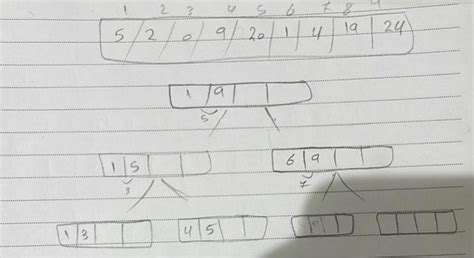 1 2 3 4 5 6 7 8 9
5 2 0 9 20 1 4 19 24
1 9
5
1 5 6 9
3 7
1 3 4 5